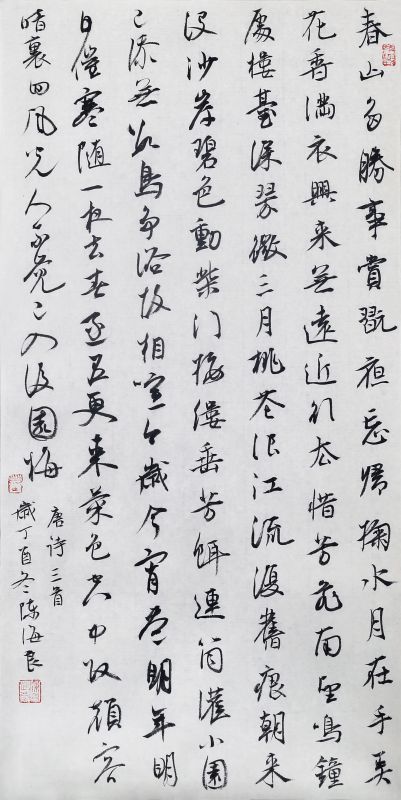 春山多勝事賞翫夜忘歸掬水月在手弄
花香滿衣興來無遠近欲去惜芳菲南望鳴鐘
處樓臺深翠微三月桃花浪江流復舊痕朝來
沒沙岸碧色動柴門接縷垂芳餌連筒灌小園
已添無數鳥爭浴故相喧今歲今宵盡明年明
日催寒隨一夜去春逐五更來氣色空中改顏容
暗裏回風光人不覺已入後園梅
唐詩三首
歲丁酉冬陳海良